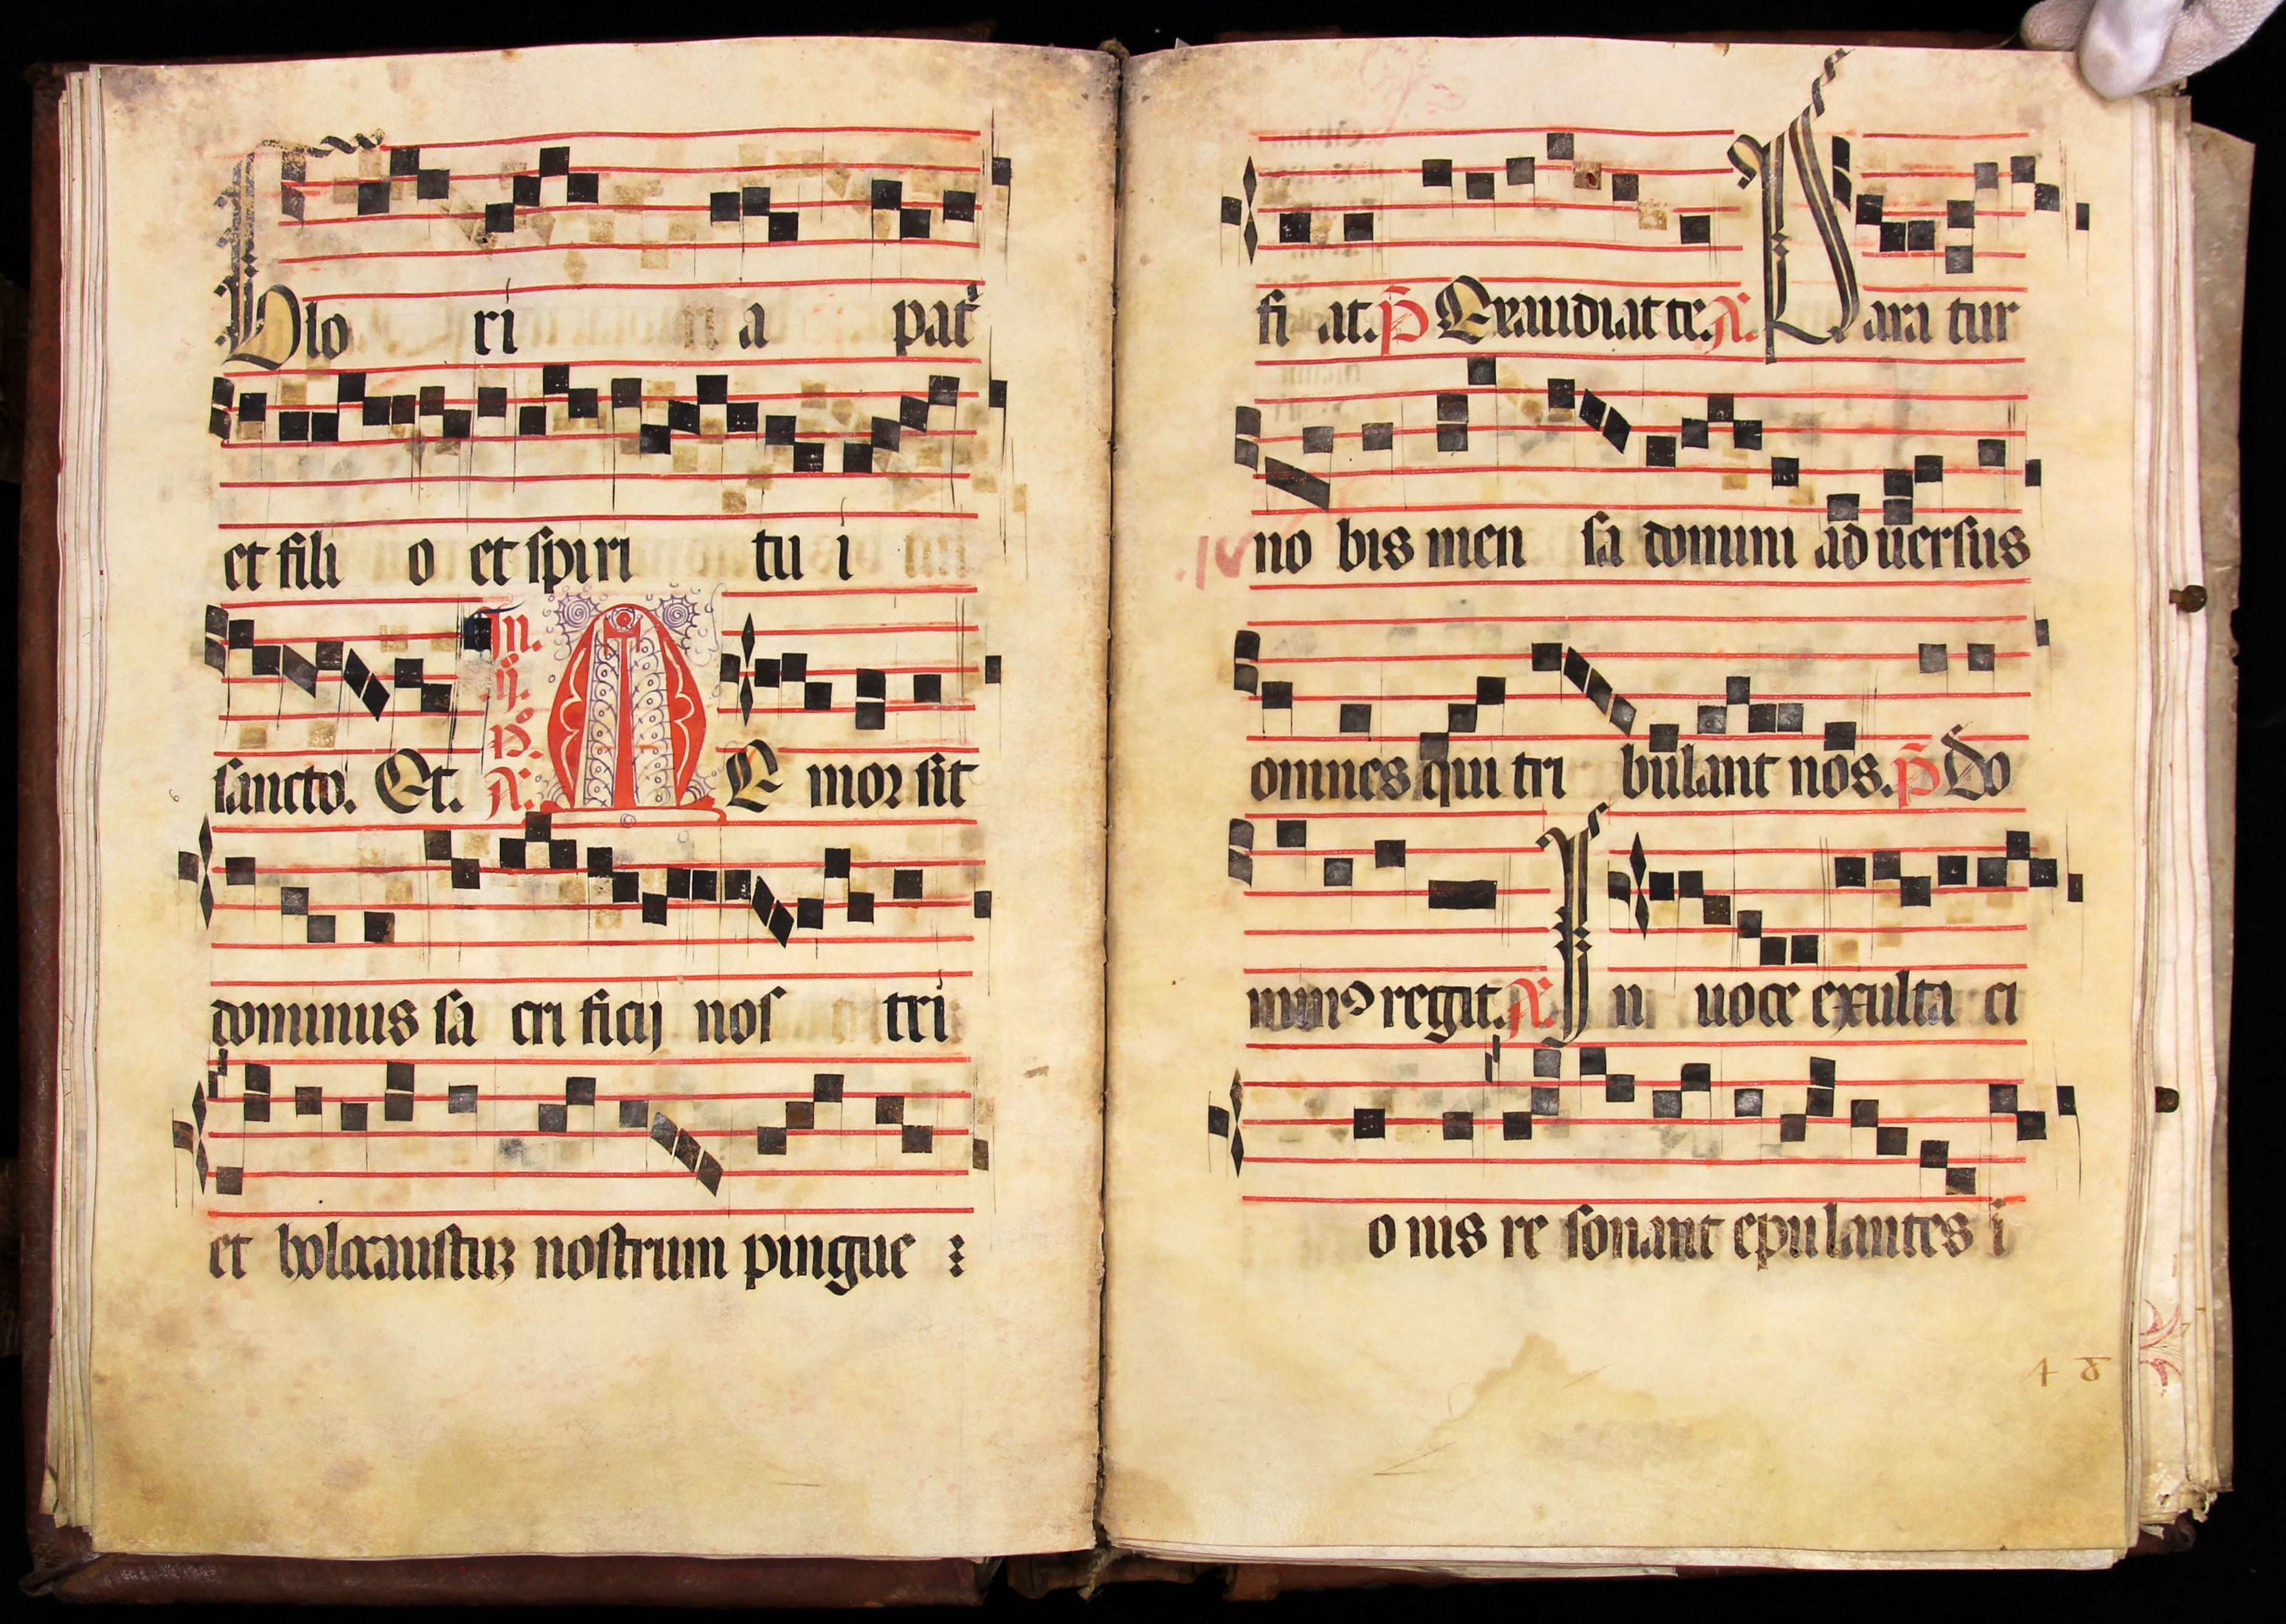 Glo ri a patr̄
et fili o et spiri tu i
sancto. Et. In. ij. no. A. M
E mor sit
dominus sa cri ficij nos tri
et holocaustuʒ nostrum pingue
fi at. p̄ Exaudiat te. A. Para tur
no bis men sa domini ad uersus
omnes qui tri bulant nos. p̄ Do
minꝰ regit. A. In uoce exulta ci
o nis re sonant epulantes i